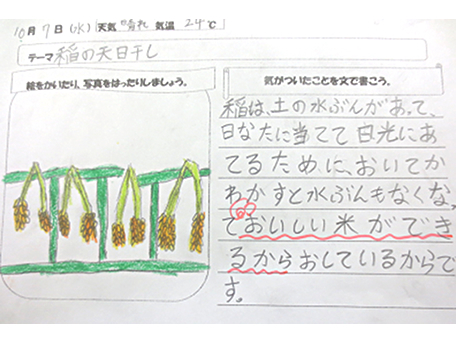 10月7日(水) 天気 晴れ 気温 24℃
テーマ 稲の天日干し
絵をかいたり、写真をはったりしましょう。
気がついたことを文で書こう。
稲は、土の水ぶんがあって、
日なたに当てて日光にあ
てるために、おいてか
わかすと水ぶんもなくなっ
ておいしい米ができ
るからおしているからで
す。